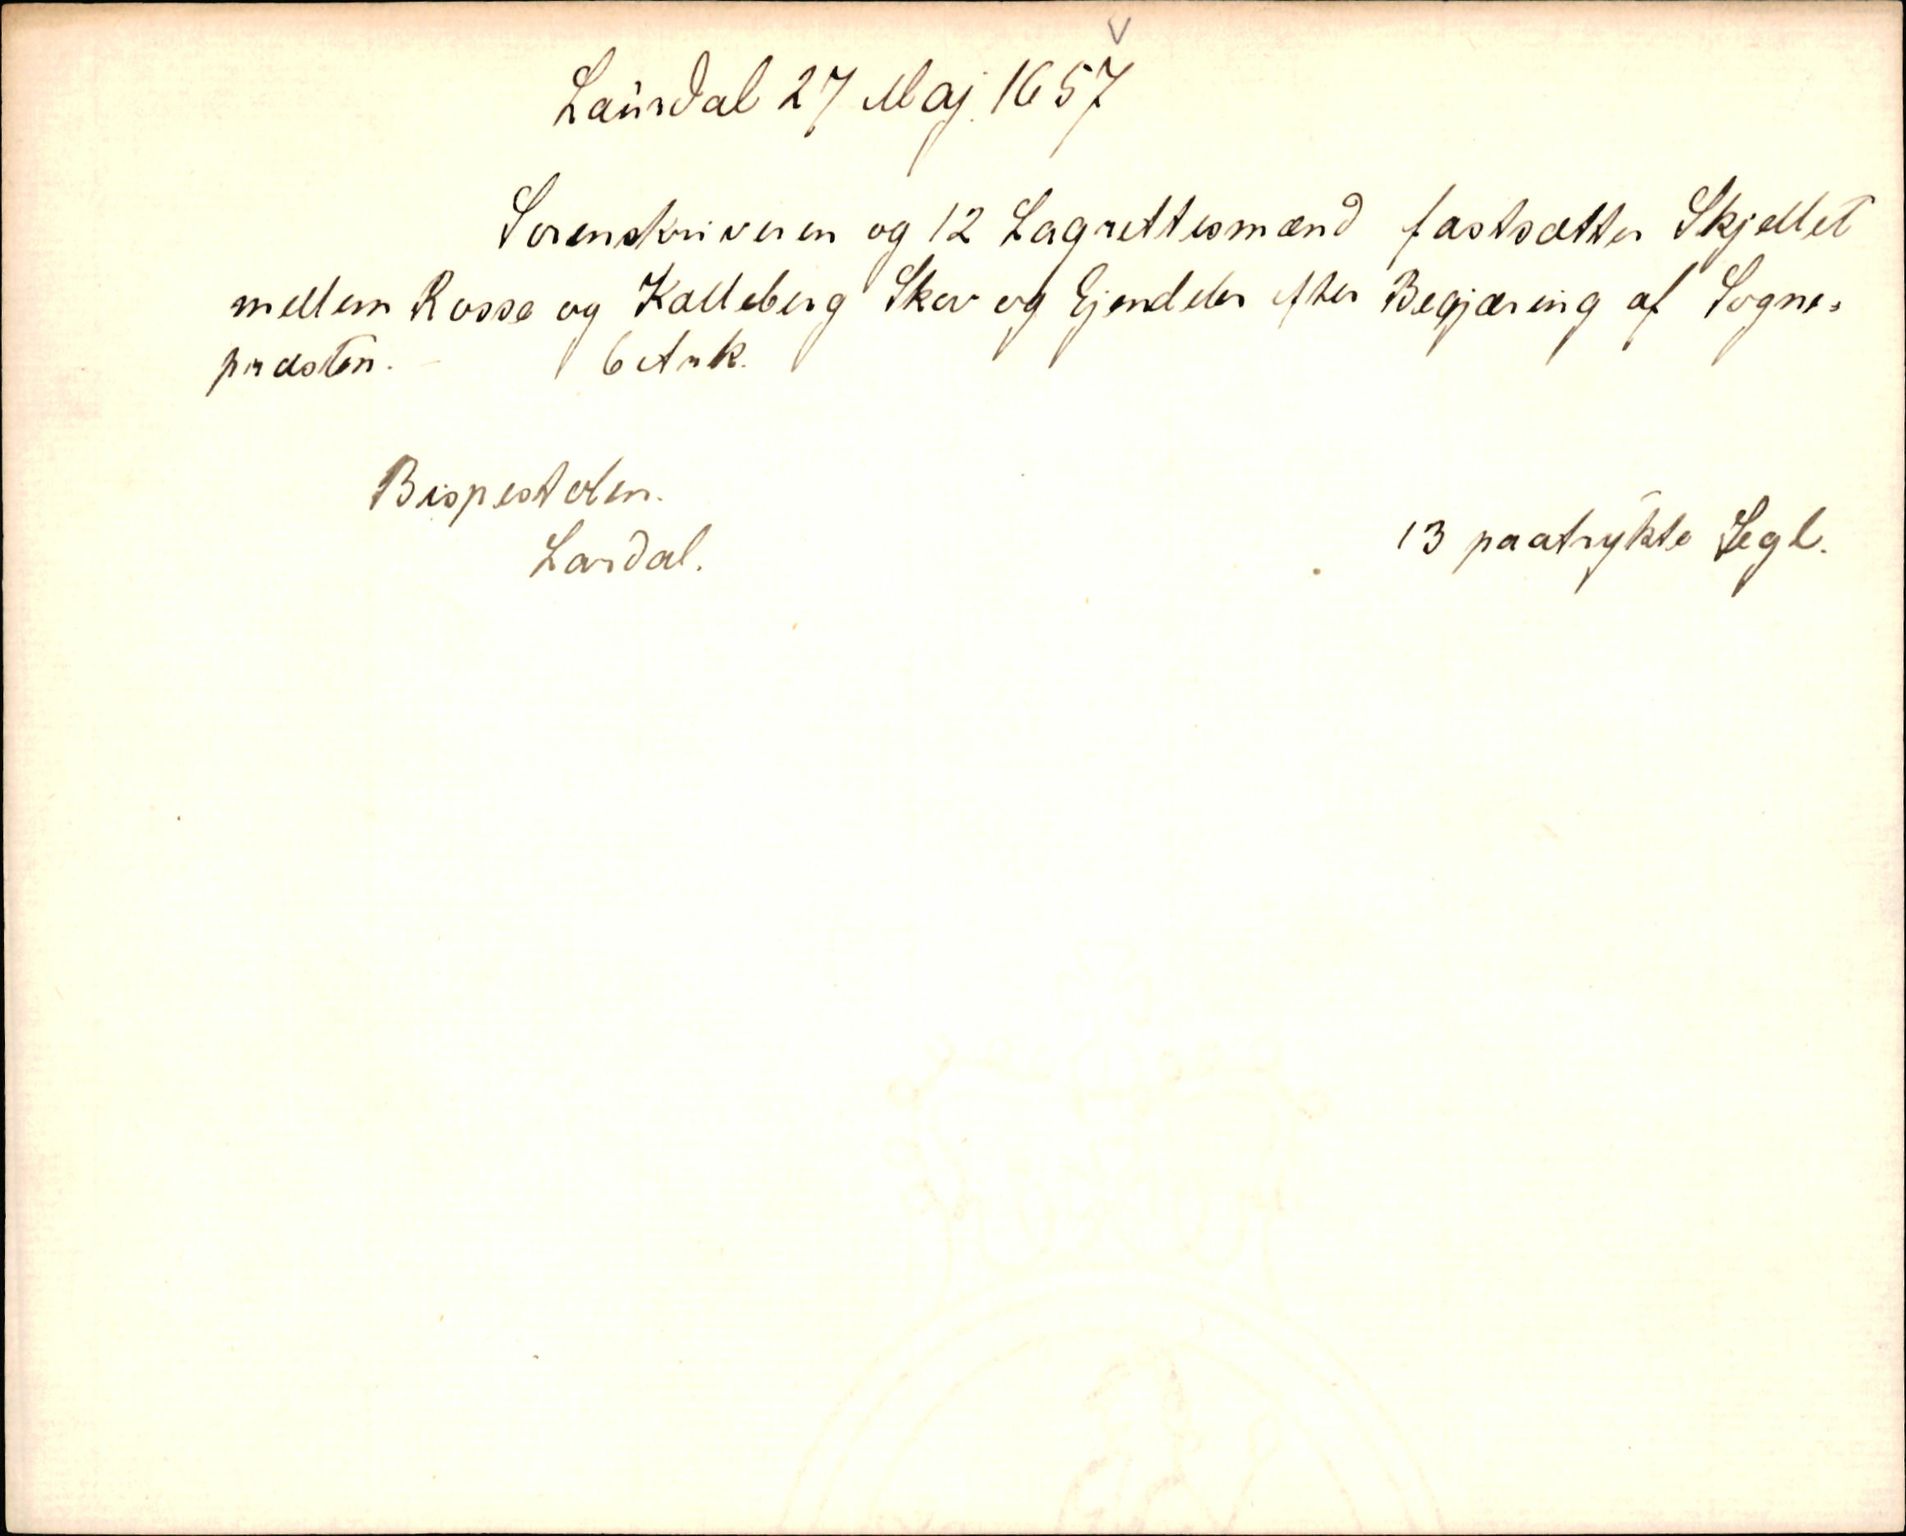 Laurdal 27 Maj 1657
Sorenskriveren og 12 Lagrettesmænd fastsætter Skjellet
mellem Rosse og Kalleberg Skov og Ejendeler efter Begjæring af Sogne-
præsten. 6 Ark.
Bispestolen.
Lardal.
13 paatrykte Segl.